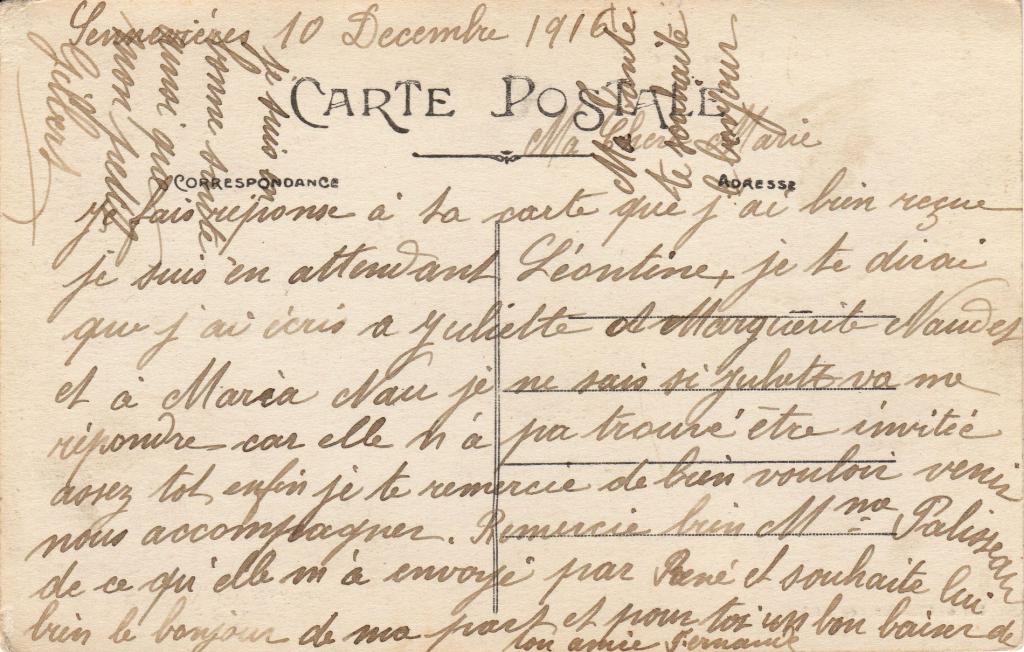 10 Decembre 1916
CARTE POSTALE
Ma Chere Marie
CORRESPONDANCE
ADRESSE
je fais réponse à ta carte que j'ai bien reçue
je suis en attendant Léontine, je te dirai
que j'ai écris a Juliette et Marguerite Naudet
et à Maria Nau je ne sais si Juliette va me
répondre car elle n'à pa trouvé être invitée
assez tot enfin je te remercie de bien vouloir venir
nous accompagner. Remercie bien Mme Palisseau
de ce qu'elle m'à envoyé par René et souhaite lui
bien le bonjour de ma part et pour toi un bon baiser de
ton amie Fernande
Ma tante
te souhaite
le bonjour
je suis en
bonne santé
ainsi que
mon petit
Gilbert